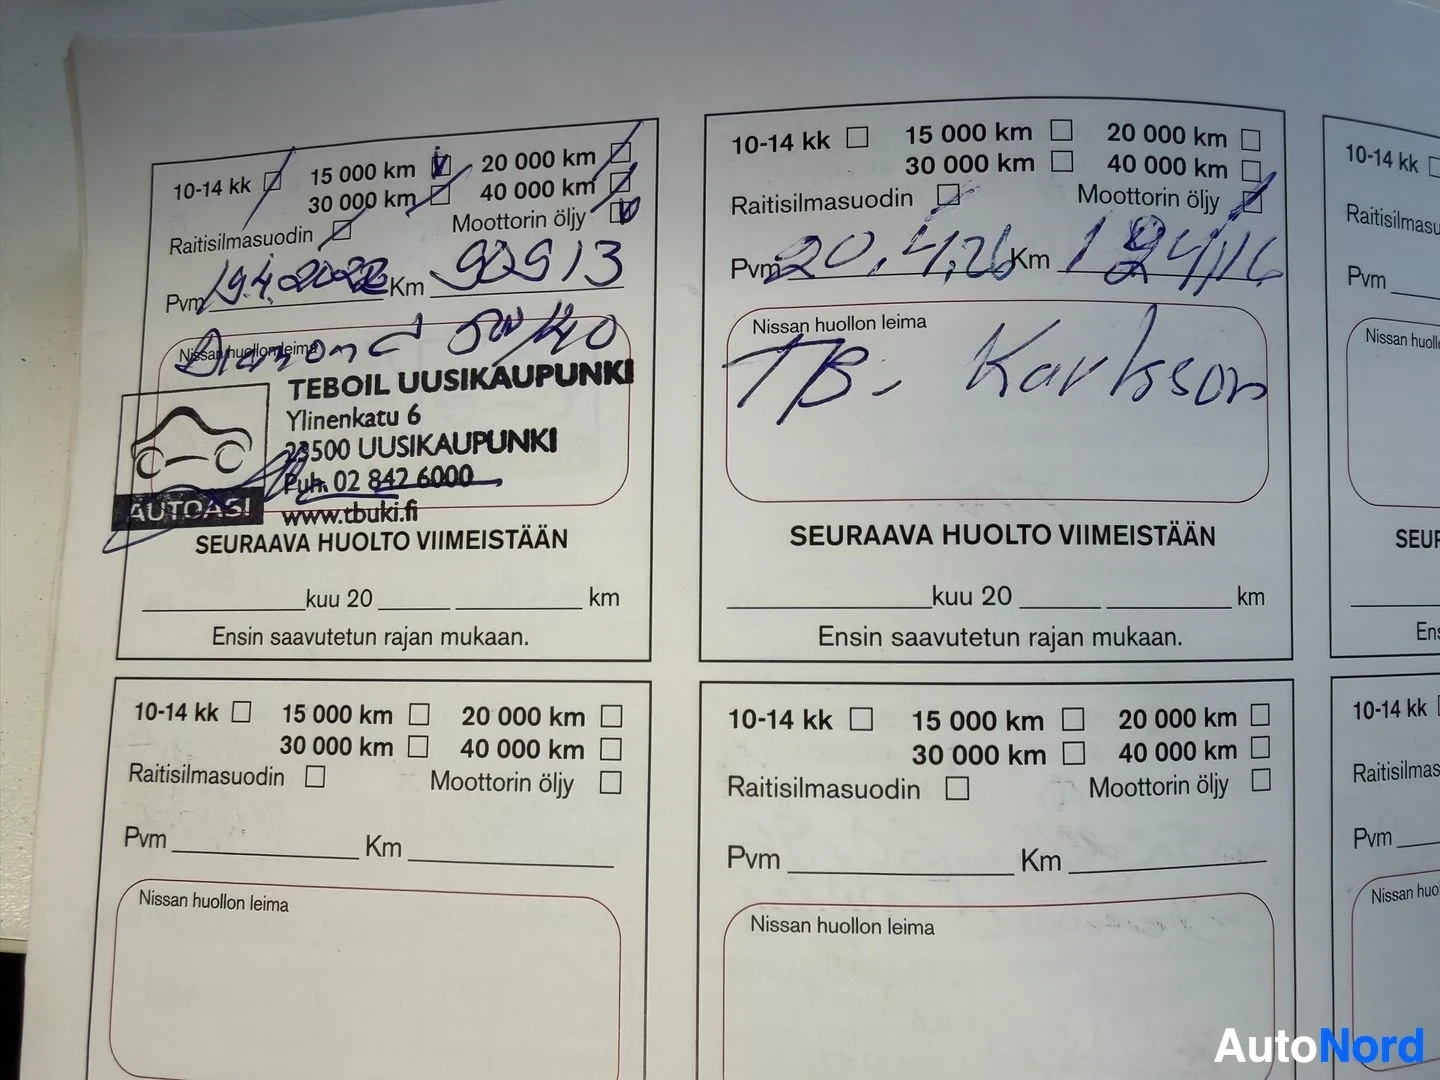 10-14 kk 15 000 km 20 000 km
30 000 km 40 000 km
Raitisilmasuodin Moottorin öljy
Pvm 19.4.2022 Km 90913
Nissan huollon leima
Diamond
TEBOIL UUSIKAUPUNKI
Ylinenkatu 6
23500 UUSIKAUPUNKI
Puh. 02 842 6000
www.tbuki.fi
AUTOASI
SEURAAVA HUOLTO VIIMEISTÄÄN
kuu 20 km
Ensin saavutetun rajan mukaan.
10-14 kk 15 000 km 20 000 km
30 000 km 40 000 km
Raitisilmasuodin Moottorin öljy
Pvm 20.4.26 Km
Nissan huollon leima
TB. Karlsson
SEURAAVA HUOLTO VIIMEISTÄÄN
kuu 20 km
Ensin saavutetun rajan mukaan.
10-14 kk
Raitisilmasu
Pvm
Nissan huoll
SEUR
Ens
10-14 kk 15 000 km 20 000 km
30 000 km 40 000 km
Raitisilmasuodin Moottorin öljy
Pvm Km
Nissan huollon leima
10-14 kk 15 000 km 20 000 km
30 000 km 40 000 km
Raitisilmasuodin Moottorin öljy
Pvm Km
Nissan huollon leima
10-14 kk
Raitisilmas
Pvm
Nissan huo
AutoNord